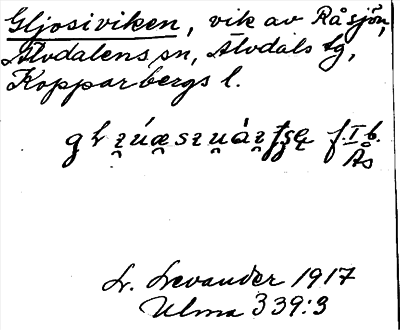 Gljosiviken, vik av Råsjön,
Älvdalens sn, Älvdals tg,
Kopparbergs l.
f. I b.
Ås
L. Levander 1917
Ulma 339:3